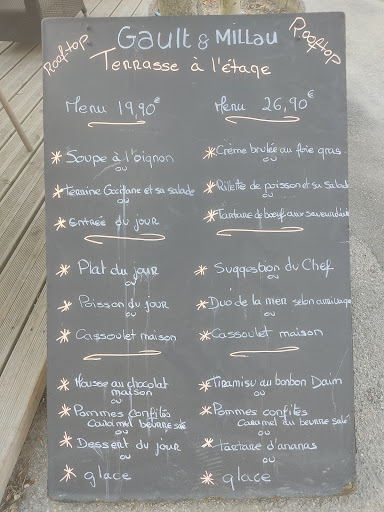 Rooftop
Gault & Millau
Rooftop
Terrasse à l'étage
Menu 19,90€
* Soupe à l'oignon
ou
* Terrine Gasconne et sa salade
ou
* Entrée du jour
* Plat du jour
ou
* Poisson du jour
ou
* Cassoulet maison
* Mousse au chocolat
maison
ou
* Pommes confites
caramel beurre salé
ou
* Dessert du jour
ou
* glace
Menu 26,90€
* Crème brulée au foie gras
ou
* Rillette de poisson et sa salade
ou
* Tartare de bœuf aux saveurs
* Suggestion du Chef
ou
* Duo de la mer selon arrivage
ou
* Cassoulet maison
* Tiramisu au bonbon Daim
ou
* Pommes confites
caramel du beurre salé
ou
* Tartare d'ananas
ou
* glace